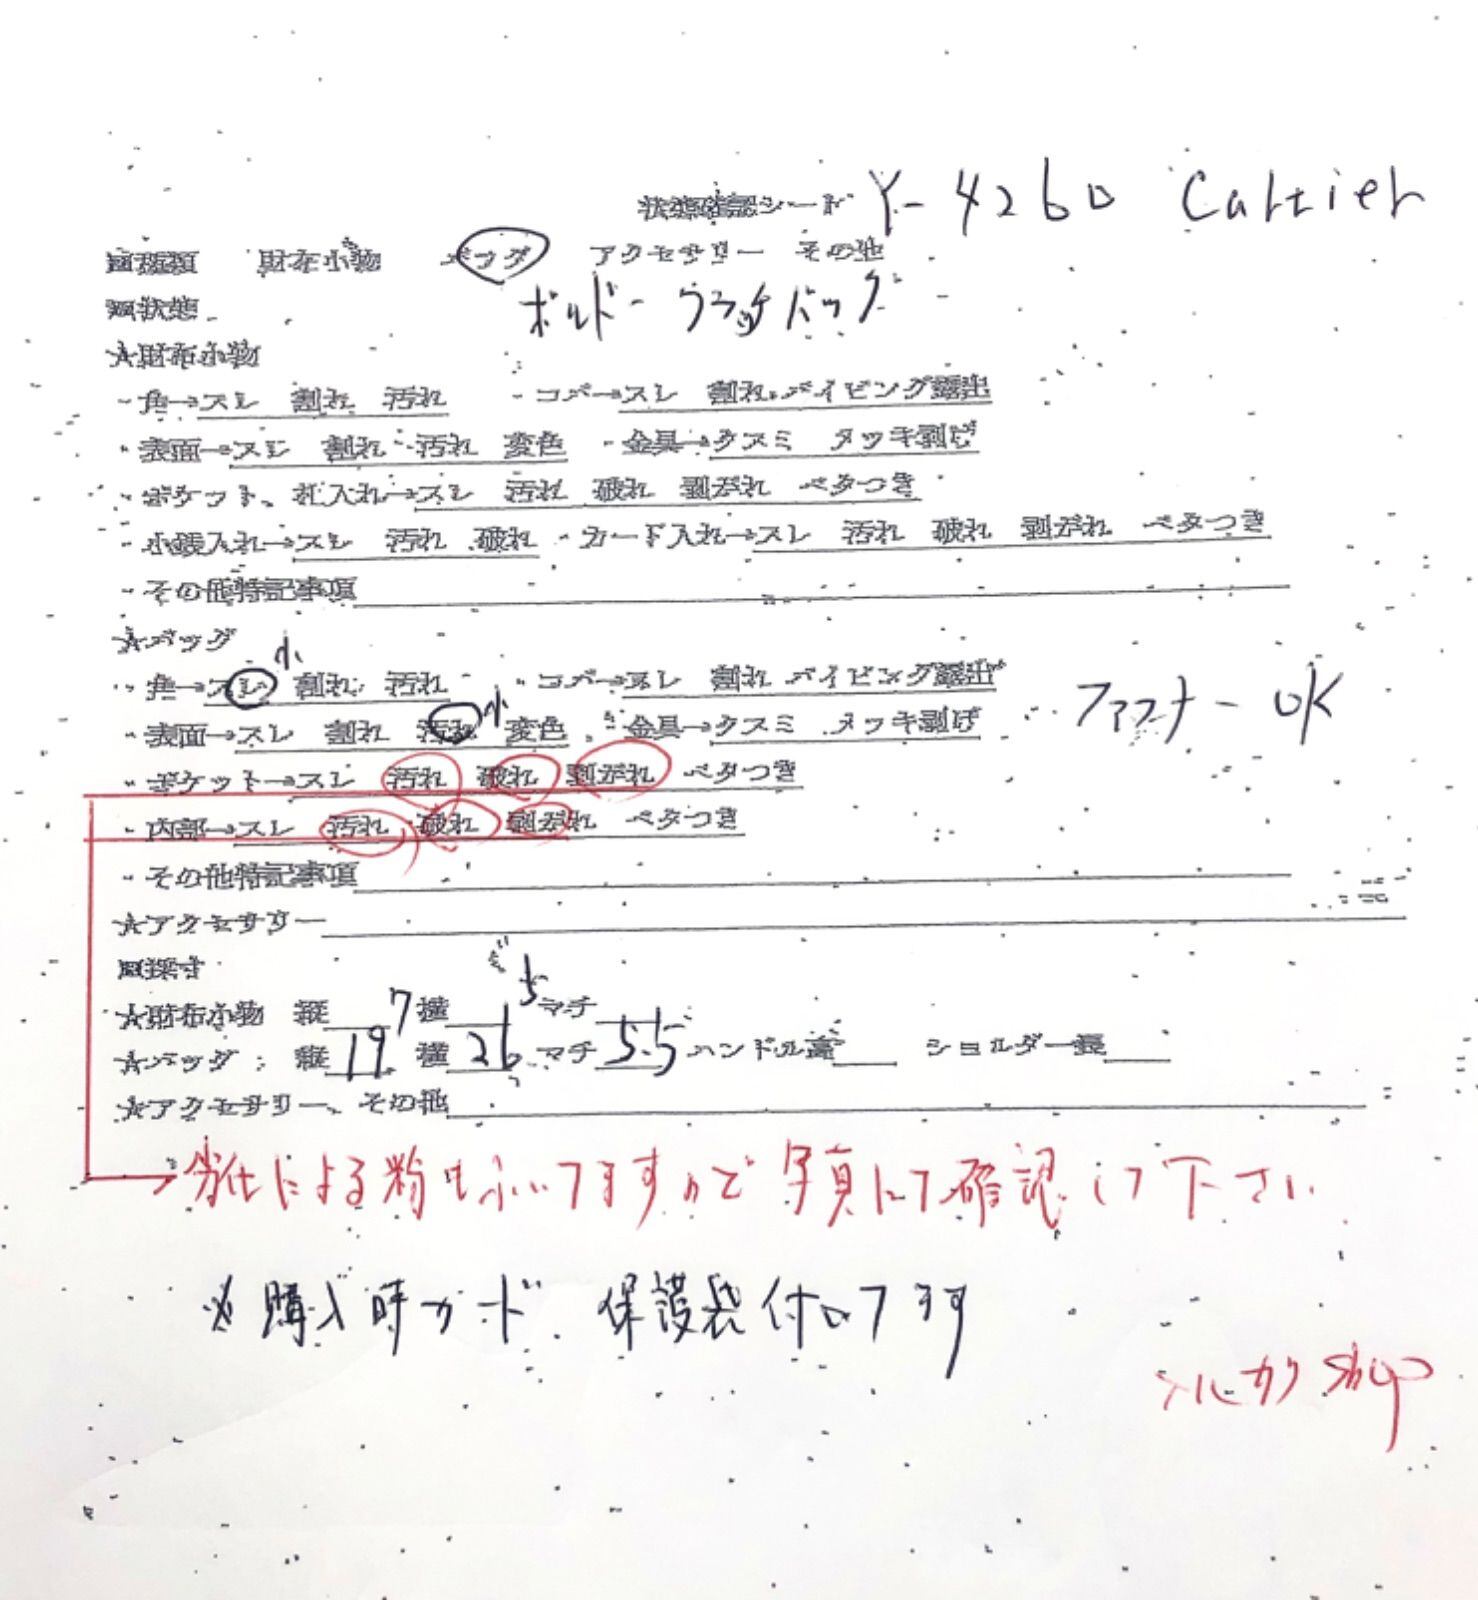 状態確認シート Y-4260 Cartier
■種類 財布小物 バッグ アクセサリー その他
■状態 ボルドークラッチバッグ
★財布小物
・角→スレ 割れ 汚れ ・コバ→スレ 割れ パイピング露出
・表面→スレ 割れ 汚れ 変色 ・金具→クスミ メッキ剥げ
・ポケット、札入れ→スレ 汚れ 破れ 剥がれ ベタつき
・小銭入れ→スレ 汚れ 破れ ・カード入れ→スレ 汚れ 破れ 剥がれ ベタつき
・その他特記事項
★バッグ
小
・角→スレ 割れ 汚れ ・コバ→スレ 割れ パイピング露出
ファスナーOK
・表面→スレ 割れ 汚れ 小 変色 ・金具→クスミ メッキ剥げ
・ポケット→スレ 汚れ 破れ 剥がれ ベタつき
・内部→スレ 汚れ 破れ 剥がれ ベタつき
・その他特記事項
★アクセサリー
■採寸
★財布小物 縦 横 マチ
★バッグ 縦 19 横 26 マチ 5.5 ハンドル高 ショルダー長
★アクセサリー、その他
劣化による粉もふいてますので写真にて確認して下さい
※購入時カード、保護袋付いてます
メルカリshop